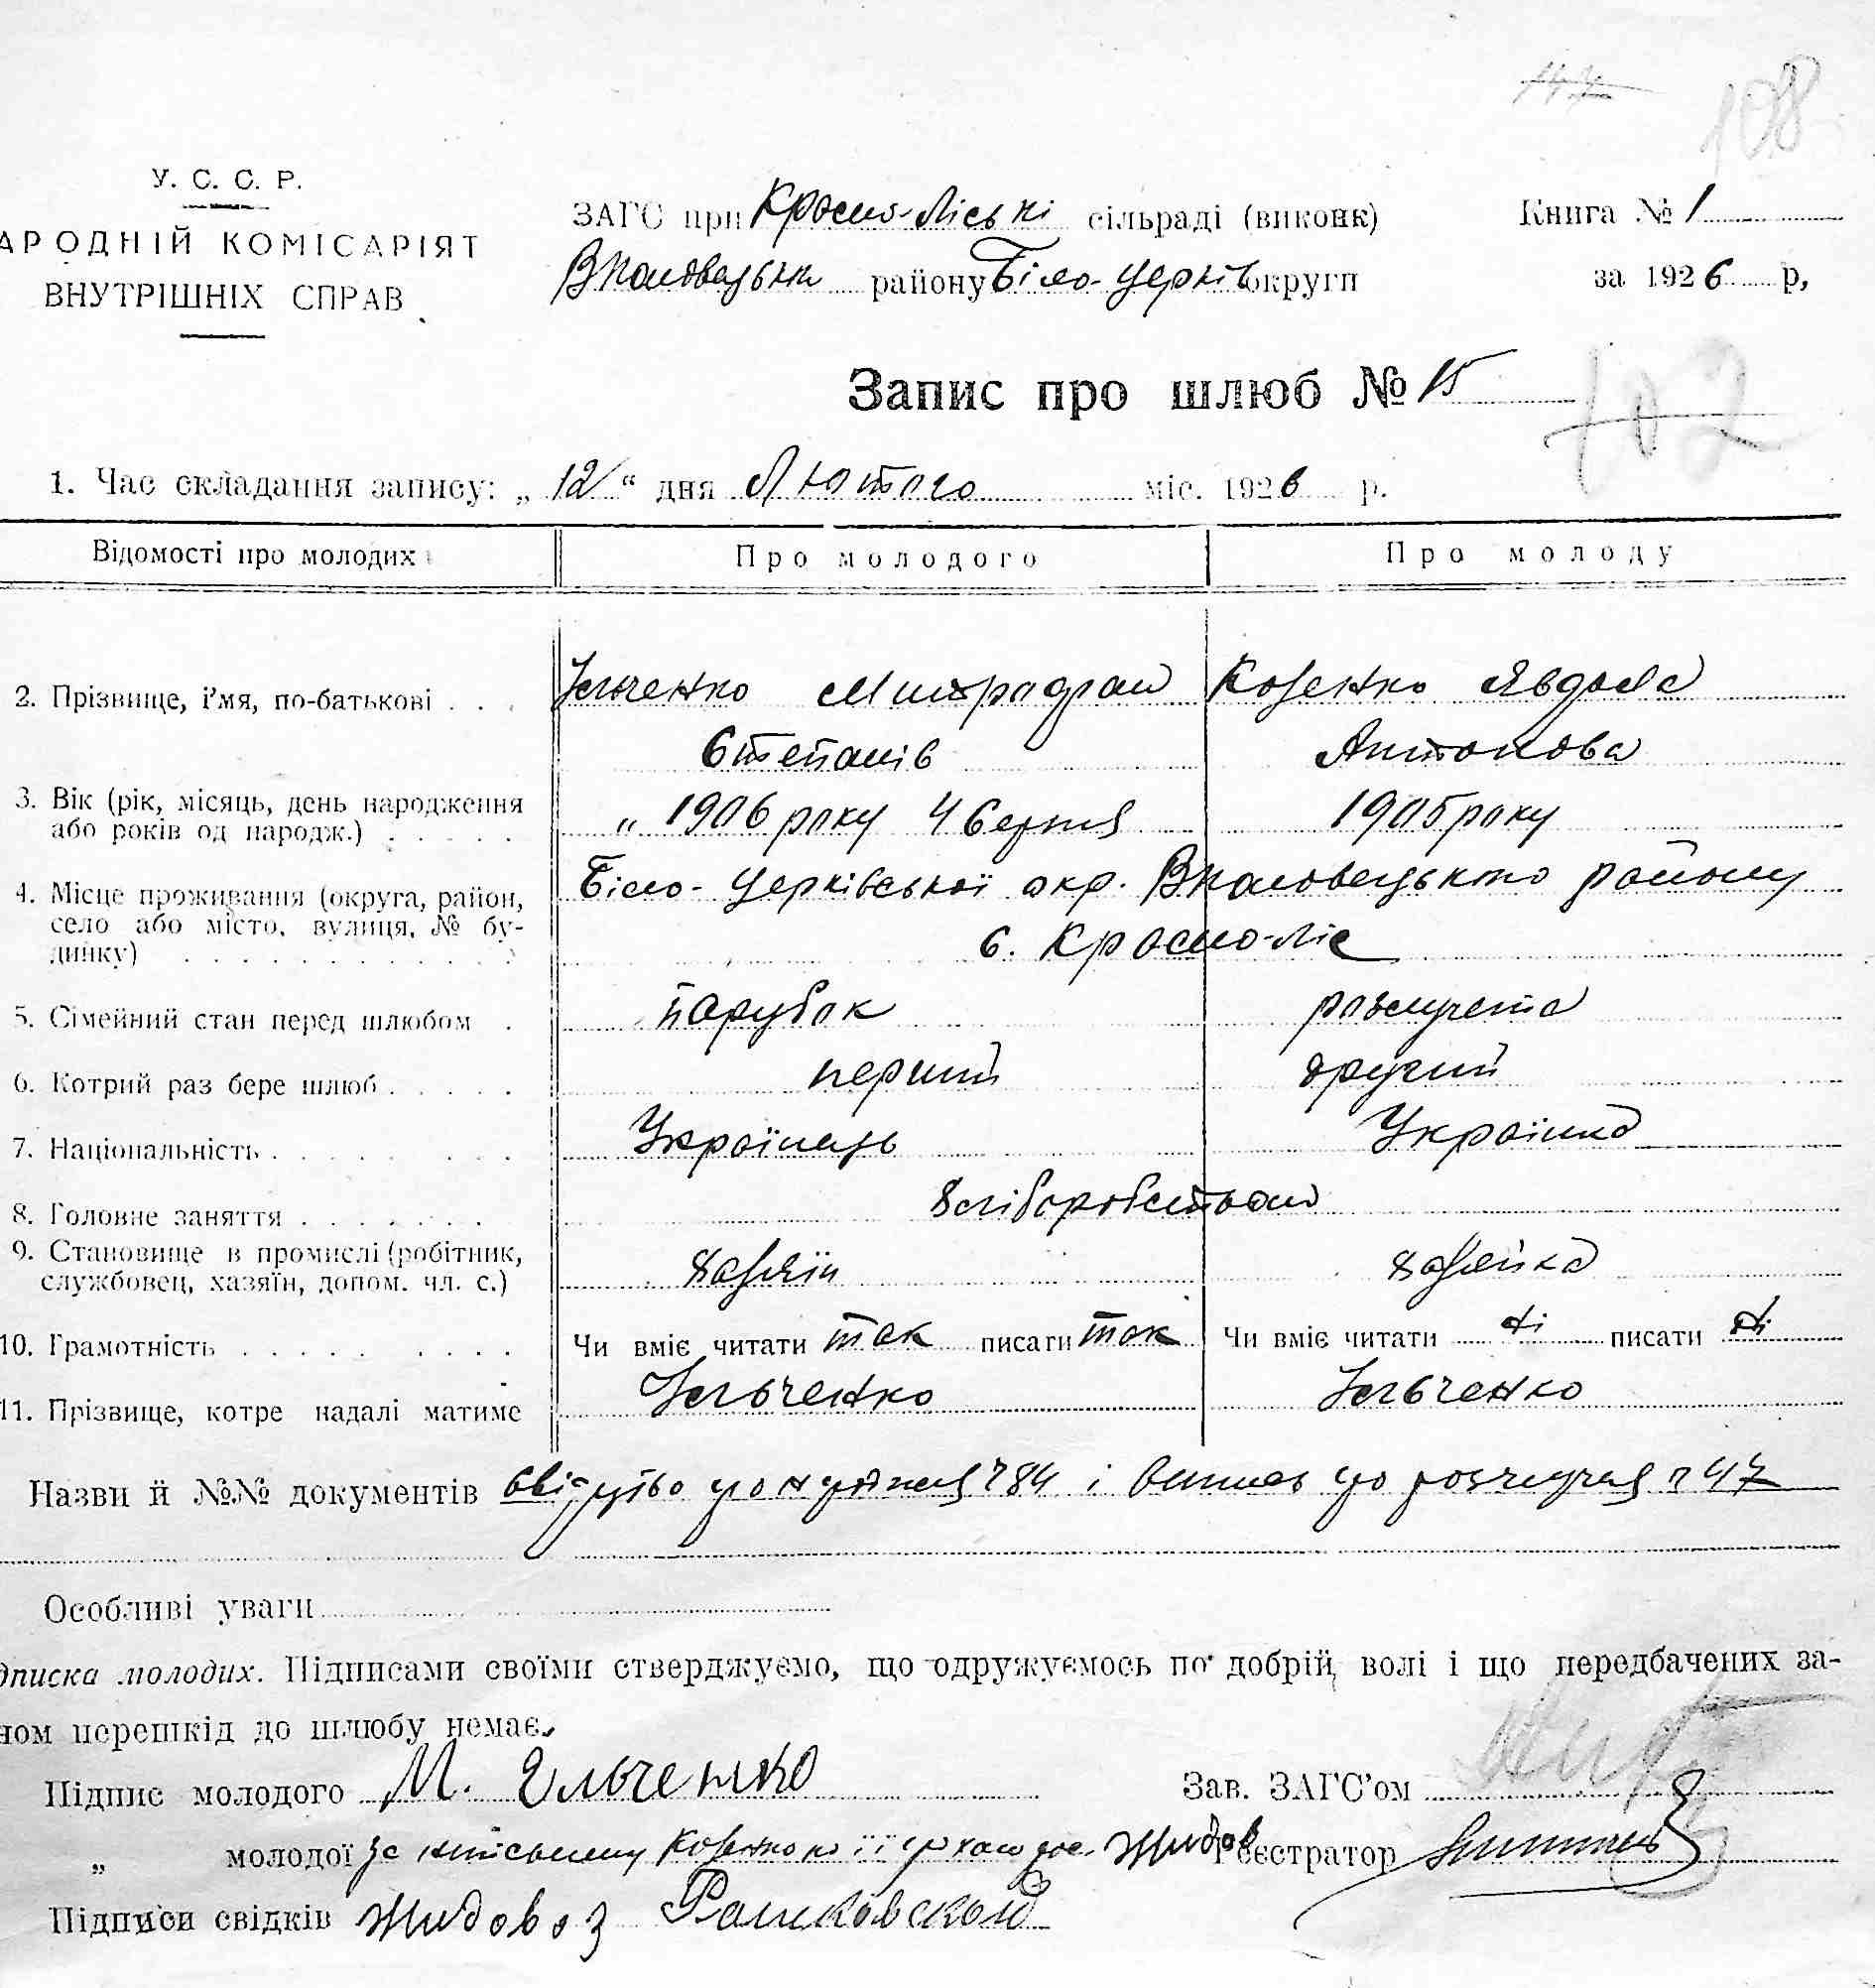 108
У. С. С. Р.
АРОДНІЙ КОМІСАРІЯТ
ВНУТРІШНІХ СПРАВ
ЗАГС при Красно-Ліські сільраді (виконк)
Книга № 1
району Біло-Церків округи
за 1926 р,
Запис про шлюб № 15
102
1. Час складання запису: „12“ дня Лютого міс. 1926 р.
Відомості про молодих
Про молодого
Про молоду
2. Прізвище, і'мя, по-батькові . . .
Ільченко Митрофан
Козенко Явдоха
Степанів
Антонова
3. Вік (рік, місяць, день народження
або років од народж.) . . . . .
„ 1906 року 4 Серпня
1905 року
4. Місце проживання (округа, район,
село або місто, вулиця, № бу-
динку) . . . . . . . . . . . .
Біло-Церківської окр. району
с. Красно-Ліс
5. Сімейний стан перед шлюбом .
парубок
розлучена
6. Котрий раз бере шлюб . . . . .
перший
другий
7. Національність . . . . . . . .
Українець
Українка
8. Головне заняття . . . . . . .
хліборобством
9. Становище в промислі (робітник,
службовец, хазяїн, допом. чл. с.)
хазяїн
хазяйка
10. Грамотність . . . . . . . . .
Чи вміє читати так писати так
Чи вміє читати ні писати ні
11. Прізвище, котре надалі матиме
Ільченко
Ільченко
Назви й №№ документів свідутво 84 і випись про 47
Особливі уваги
дписка молодих. Підписами своїми стверджуємо, що одружуємось по добрій волі і що передбачених за-
ном перешкід до шлюбу немає.
Підпис молодого М. Ільченко
Зав. ЗАГС'ом
„ молодої за Козенко її Жидов
Реєстратор
Підписи свідків Жидовоз